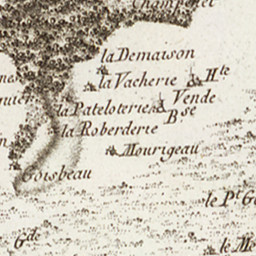 la Demaison
la Vacherie
Hte
Vende
la Pateloterie
Bse
la Roberderie
Mourigeau
Goisbeau
le Pt
Gde